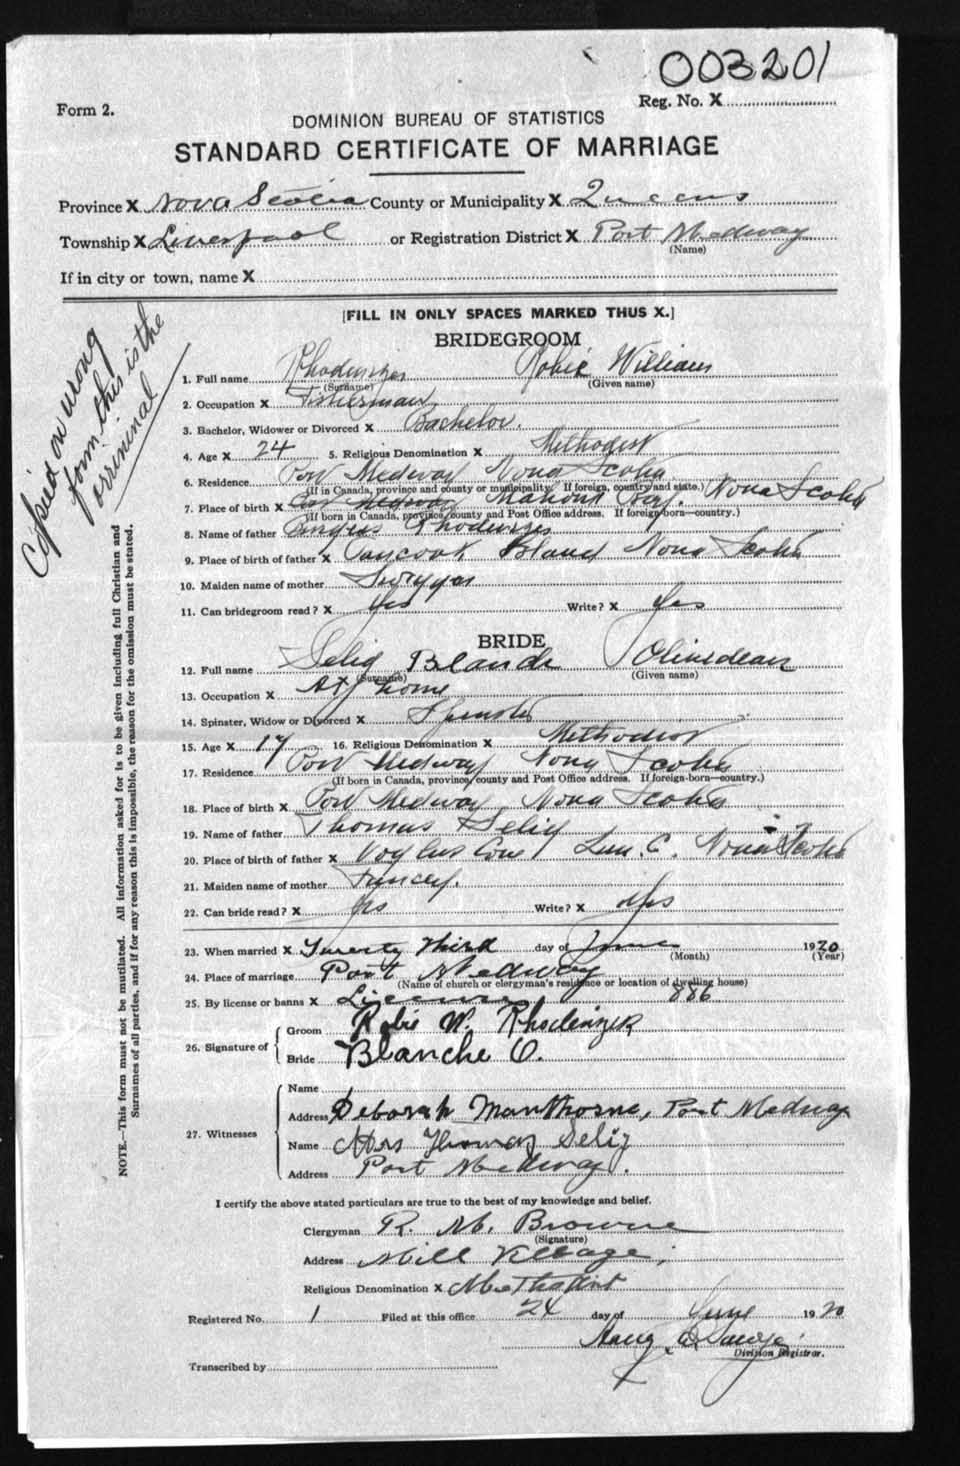 003201
Form 2.
Reg. No. X
DOMINION BUREAU OF STATISTICS
STANDARD CERTIFICATE OF MARRIAGE
Province X Nova Scotia County or Municipality X Queens
Township X Liverpool or Registration District X Port Medway
(Name)
If in city or town, name X
Copied on wrong
form this is the
orriminal
[FILL IN ONLY SPACES MARKED THUS X.]
BRIDEGROOM
1. Full name Rhodenizer Robie William
(Surname) (Given name)
2. Occupation X Fisherman
3. Bachelor, Widower or Divorced X Bachelor.
4. Age X 24 5. Religious Denomination X Methodist
6. Residence Port Medway Nova Scotia
(If in Canada, province and county or municipality. If foreign, country and state.)
7. Place of birth X Port Medway Mahone Bay. Nova Scotia
(If born in Canada, province/county and Post Office address. If foreign-born—country.)
8. Name of father Rhodenizer
9. Place of birth of father X Tancook Island Nova Scotia
10. Maiden name of mother
11. Can bridegroom read? X Yes Write? X Yes
BRIDE
12. Full name Selig Blanch
(Surname) (Given name)
13. Occupation X At home
14. Spinster, Widow or Divorced X Spinster
15. Age X 17 16. Religious Denomination X Methodist
17. Residence Port Medway Nova Scotia
(If born in Canada, province/county and Post Office address. If foreign-born—country.)
18. Place of birth X Port Medway Nova Scotia
19. Name of father Thomas Selig
20. Place of birth of father X Voglers Cove Lun. C. Nova Scotia
21. Maiden name of mother
22. Can bride read? X Yes Write? X Yes
23. When married X Twenty third day of June 1920
(Month) (Year)
24. Place of marriage Port Medway
(Name of church or clergyman's residence or location of dwelling house)
25. By license or banns X License 886
26. Signature of
Groom Robie W. Rhodenizer
Bride Blanche O.
27. Witnesses
Name
Address Deborah Manthorne, Port Medway
Name Mrs Thomas Selig
Address Port Medway.
I certify the above stated particulars are true to the best of my knowledge and belief.
Clergyman R. M. Browne
(Signature)
Address Mill Village,
Religious Denomination X Methodist
Registered No. 1 Filed at this office 24 day of June 1920
Division Registrar.
Transcribed by
NOTE.—This form must not be mutilated. All information asked for is to be given including full Christian and
Surnames of all parties, and if for any reason this is impossible, the reason for the omission must be stated.